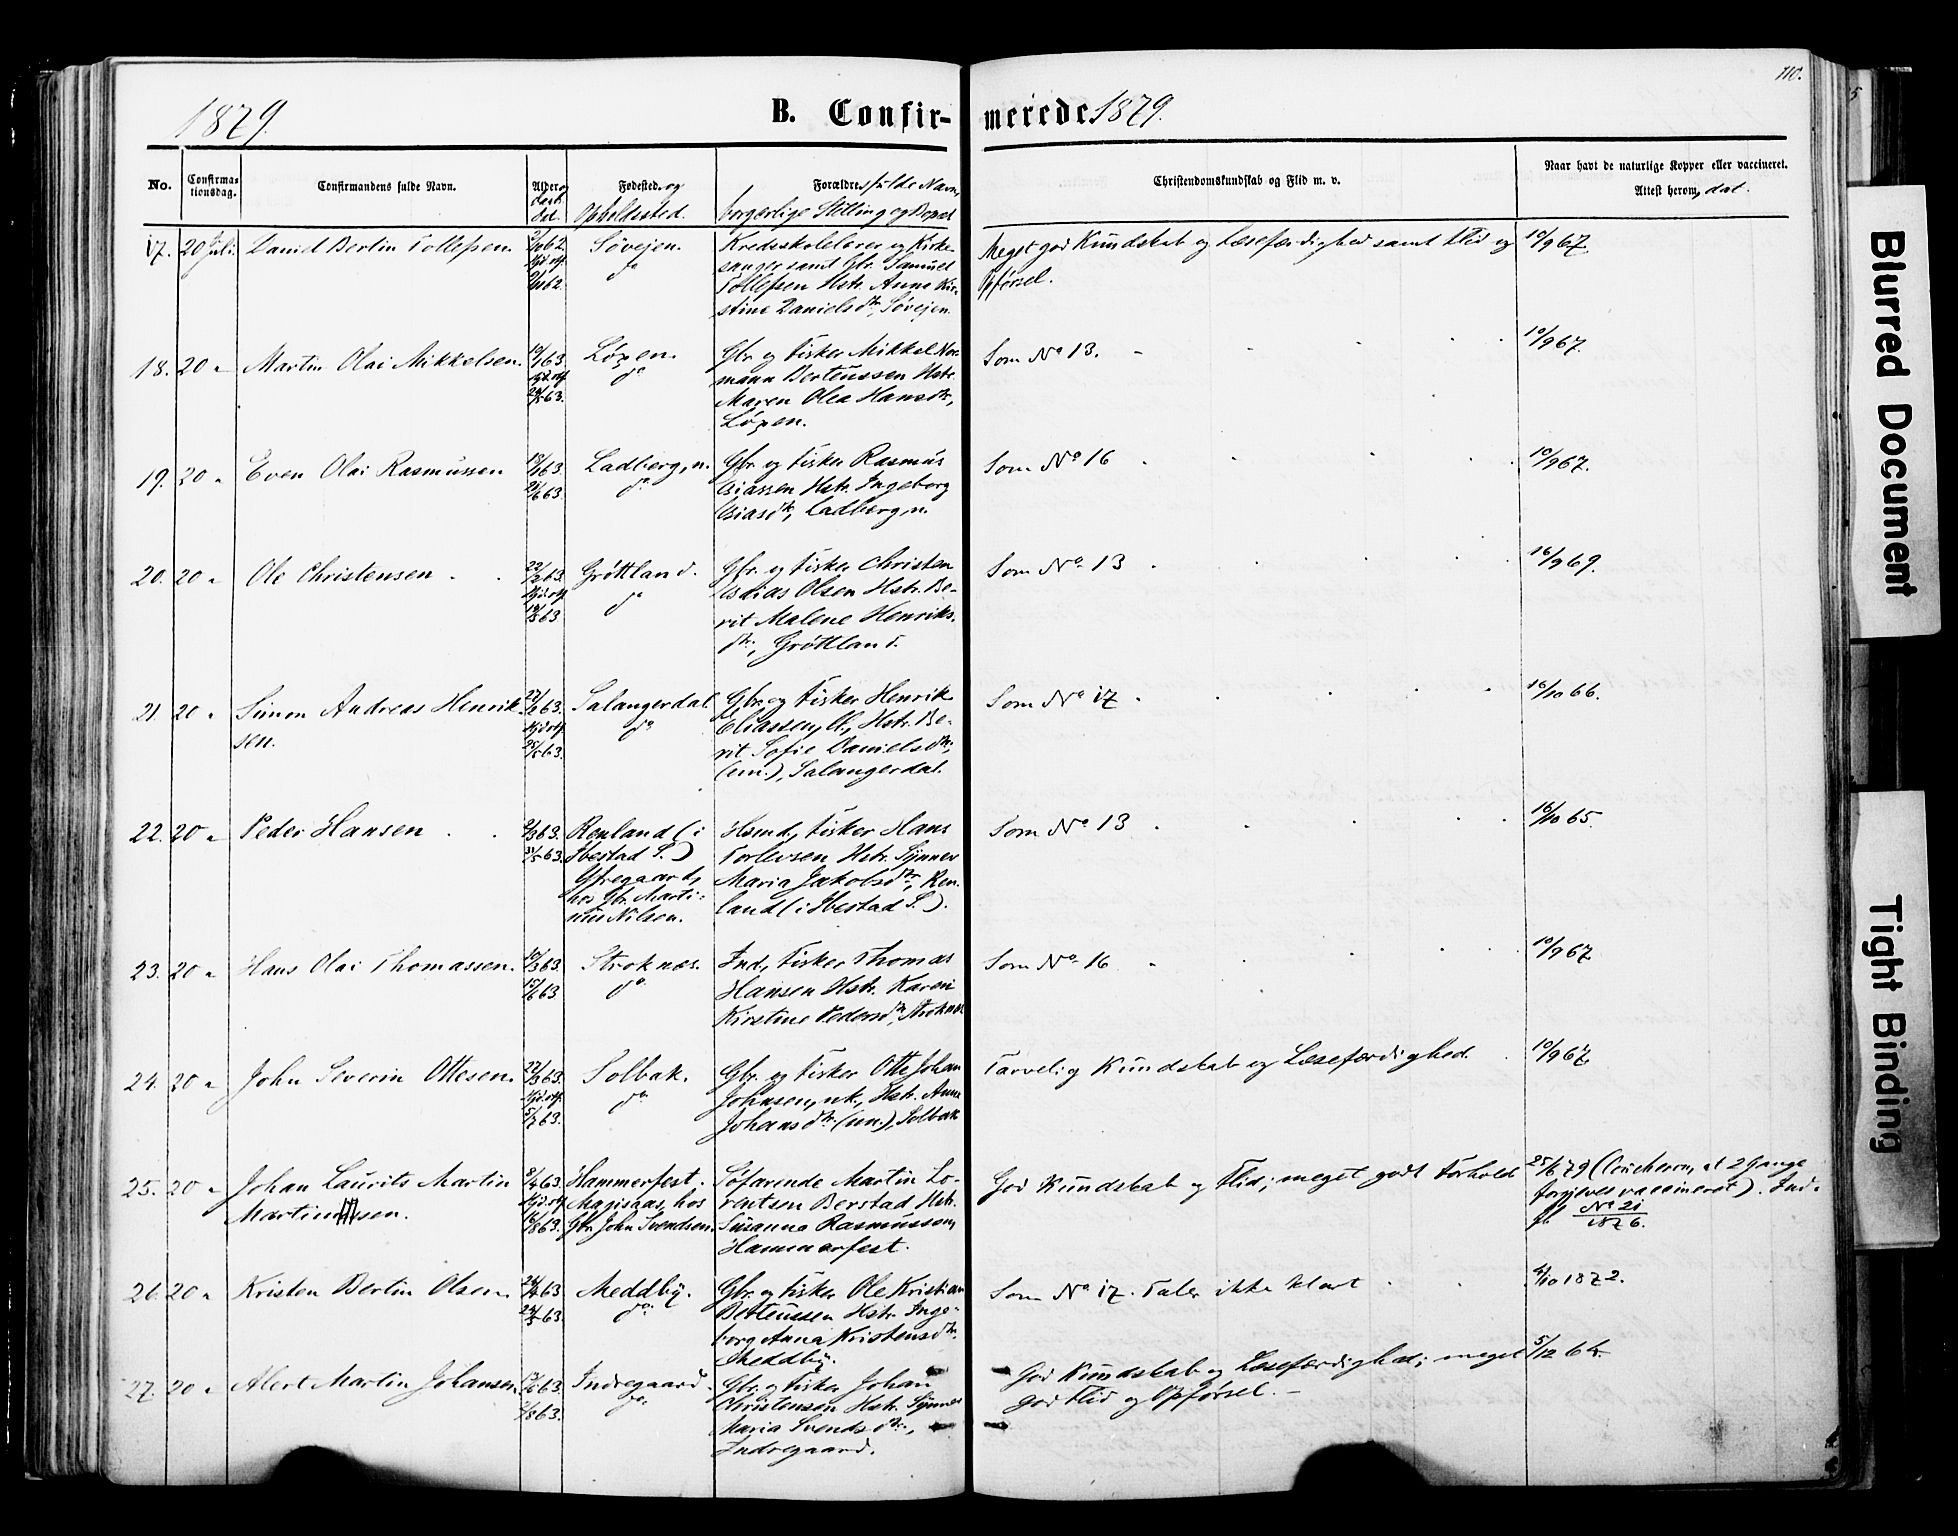 110.
5
1879.
B. Confir-
merede 1879.
No.
Confirma-
tionsdag.
Confirmandens fulde Navn.
Alder og
Fødested. og
Opholdssted.
Forældres fulde Navn,
borgerlige Stilling og Bopæl
Christendomskundskab og Flid m. v.
Naar havt de naturlige Kopper eller vaccineret.
Attest herom, dat.
17. 20 Juli. Daniel Bertin Tollefsen.
Søvejen.
do
Kredsskolelærer og Kirke-
sanger samt Gbr. Samuel
Tollefsen Hstr. Anne Kir-
stine Danielsdtr, Søvejen.
Meget god Kundskab og Læsefærdighed samt Flid og
Opførsel.
10/9 67.
18. 20 " Martin Olai Mikkelsen.
10/1 63.
Løxen.
do
Gbr. og Fisker Mikkel Nor-
mann Berteussen Hstr.
Maren Olea Hansdtr,
Løxen.
Som No 13.
10/9 67.
19. 20 " Even Olai Rasmussen
Ladberg, n.
do
Gbr. og Fisker Rasmus
Esiassen Hstr. Ingeborg
Esiasdtr, Ladberg, n.
Som No 16
10/9 67.
20. 20 " Ole Christensen
22/2 63.
Grøttland.
do
Gbr. og Fisker Christen
Esaias Olsen Hstr. Be-
rit Malene Henriks-
dtr, Grøttland.
Som No 13
16/9 69.
21. 20 " Simon Andreas Henrik-
sen.
Salangerdal
do
Gbr. og Fisker Henrik
Eliassen, Hstr. Be-
rit Sofie Danielsdtr,
(un.), Salangerdal.
Som No 17
16/10 66.
22. 20 " Peder Hansen
31/5 63.
Renland (i
Ibestad S.)
hos Gbr. Marti-
nus Nilsen.
Hsmd., Fisker Hans
Torlevsen Hstr. Synnev
Maria Jakobsdtr, Ren-
land (i Ibestad S.).
Som No 13
16/10 65.
23. 20 " Hans Olai Thomassen.
10/3 63.
15/6 63
Stroknæs.
do
Ind., Fisker Thomas
Hansen Hstr. Karen
Kirstine Pedersdtr, Stroknæs
Som No 16
10/9 67
24. 20 " John Severin Ottesen.
22/3 63.
5/7 63.
Solbak.
do
Gbr. og Fisker Otte Johan
Johnsen, nk., Hstr. Anne
Johansdtr. (un.), Solbak
Tarvelig Kundskab og Læsefærdighed.
10/9 67.
25. 20 " Johan Laurits Martin
Martinsen.
8/4 63.
16/8 63.
Hammerfest.
hos
Gbr. John Svendsen.
Søfarende Martin Lo-
rentsen Berstad Hstr.
Susanna Rasmussen,
Hammerfest.
God Kundskab og Flid; meget godt Forhold
25/6 79 at 2 Gange
forgjæves vaccineret). Ind-
fl No 21
1876.
26. 20 " Kristen Bertin Olsen.
24/4 63
24/5 63.
Meddby.
do
Gbr. og Fisker Ole Kristian
Berteussen Hstr. Inge-
borg Anna Kristensdtr.
Meddby.
Som No 17. Taler ikke klart
4/10 1872.
27. 20 " Alert Martin Johansen
Indregaard.
do
Gbr. og Fisker Johan
Christensen Hstr. Synnev
Maria Svendsdtr,
Indregaard.
God Kundskab og Læsefærdighed; meget
god Flid og Opførsel. —
5/12 64.
Blurred Document
Tight Binding